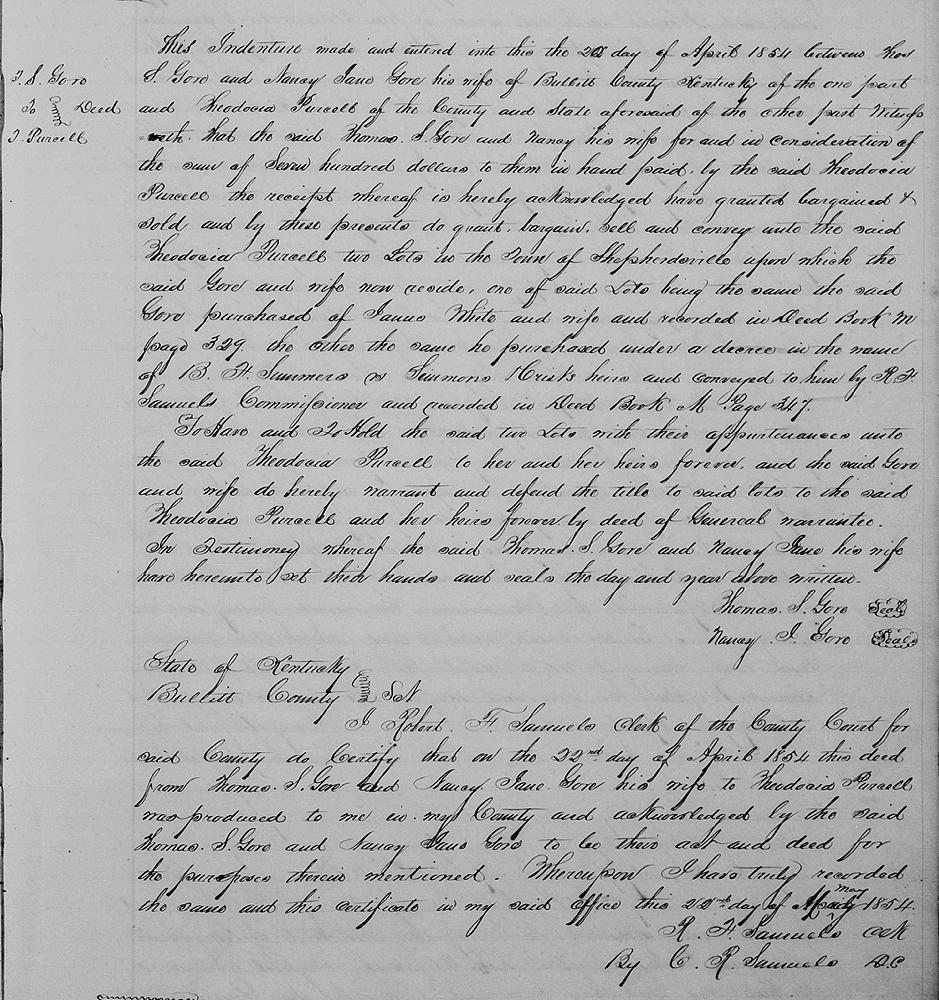 This Indenture made and entered into this the 22 day of April 1854 between Thos
T. S. Gore
S. Gore and Nancy Jane Gore his wife of Bullitt County Kentucky of the one part
To Deed
and Theodocia Purcell of the County and State aforesaid of the other part Witness
T Purcell
-eth. that the said Thomas. S. Gore and Nancy his wife for and in consideration of
the sum of Seven hundred dollars to them in hand paid, by the said Theodocia
Purcell the receipt whereof is hereby acknowledged have granted bargained &
sold and by these presents do grant, bargain, sell and convey unto the said
Theodocia Purcell two Lots in the Town of Shepherdsville upon which the
said Gore and wife now reside, one of said Lots being the same the said
Gore purchased of James White and wife and recorded in Deed Book M
page 329. the other the same he purchased under a decree in the name
of B. F. Summers vs Simmons Heirs and conveyed to him by R. F.
Samuels Commissioner and recorded in Deed Book M Page 347.
To Have and To Hold the said two Lots with their appurtenances unto
the said Theodocia Purcell to her and her heirs forever, and the said Gore
and wife do hereby warrant and defend the title to said lots to the said
Theodocia Purcell and her heirs forever by deed of Genereal warrantee.
In Testimoney whereof the said Thomas. S. Gore and Nancy Jane his wife
have hereunto set their hands and seals the day and year above written.
Thomas. S. Gore Seal
Nancy. J. Gore Seal
State of Kentucky
Bullitt County
I Robert. F. Samuels Clerk of the County Court for
said County do Certify that on the 22nd day of April 1854 this deed
from Thomas. S. Gore and Nancy Jane Gore his wife to Theodocia Purcell
was produced to me in my County and acknowledged by the said
Thomas. S. Gore and Nancy Jane Gore to be their act and deed for
the purposes therein mentioned. Whereupon I have truly recorded
the same and this certificate in my said office this 22nd day of may 1854.
R. F. Samuels Clk
By C. R. Samuels D.C